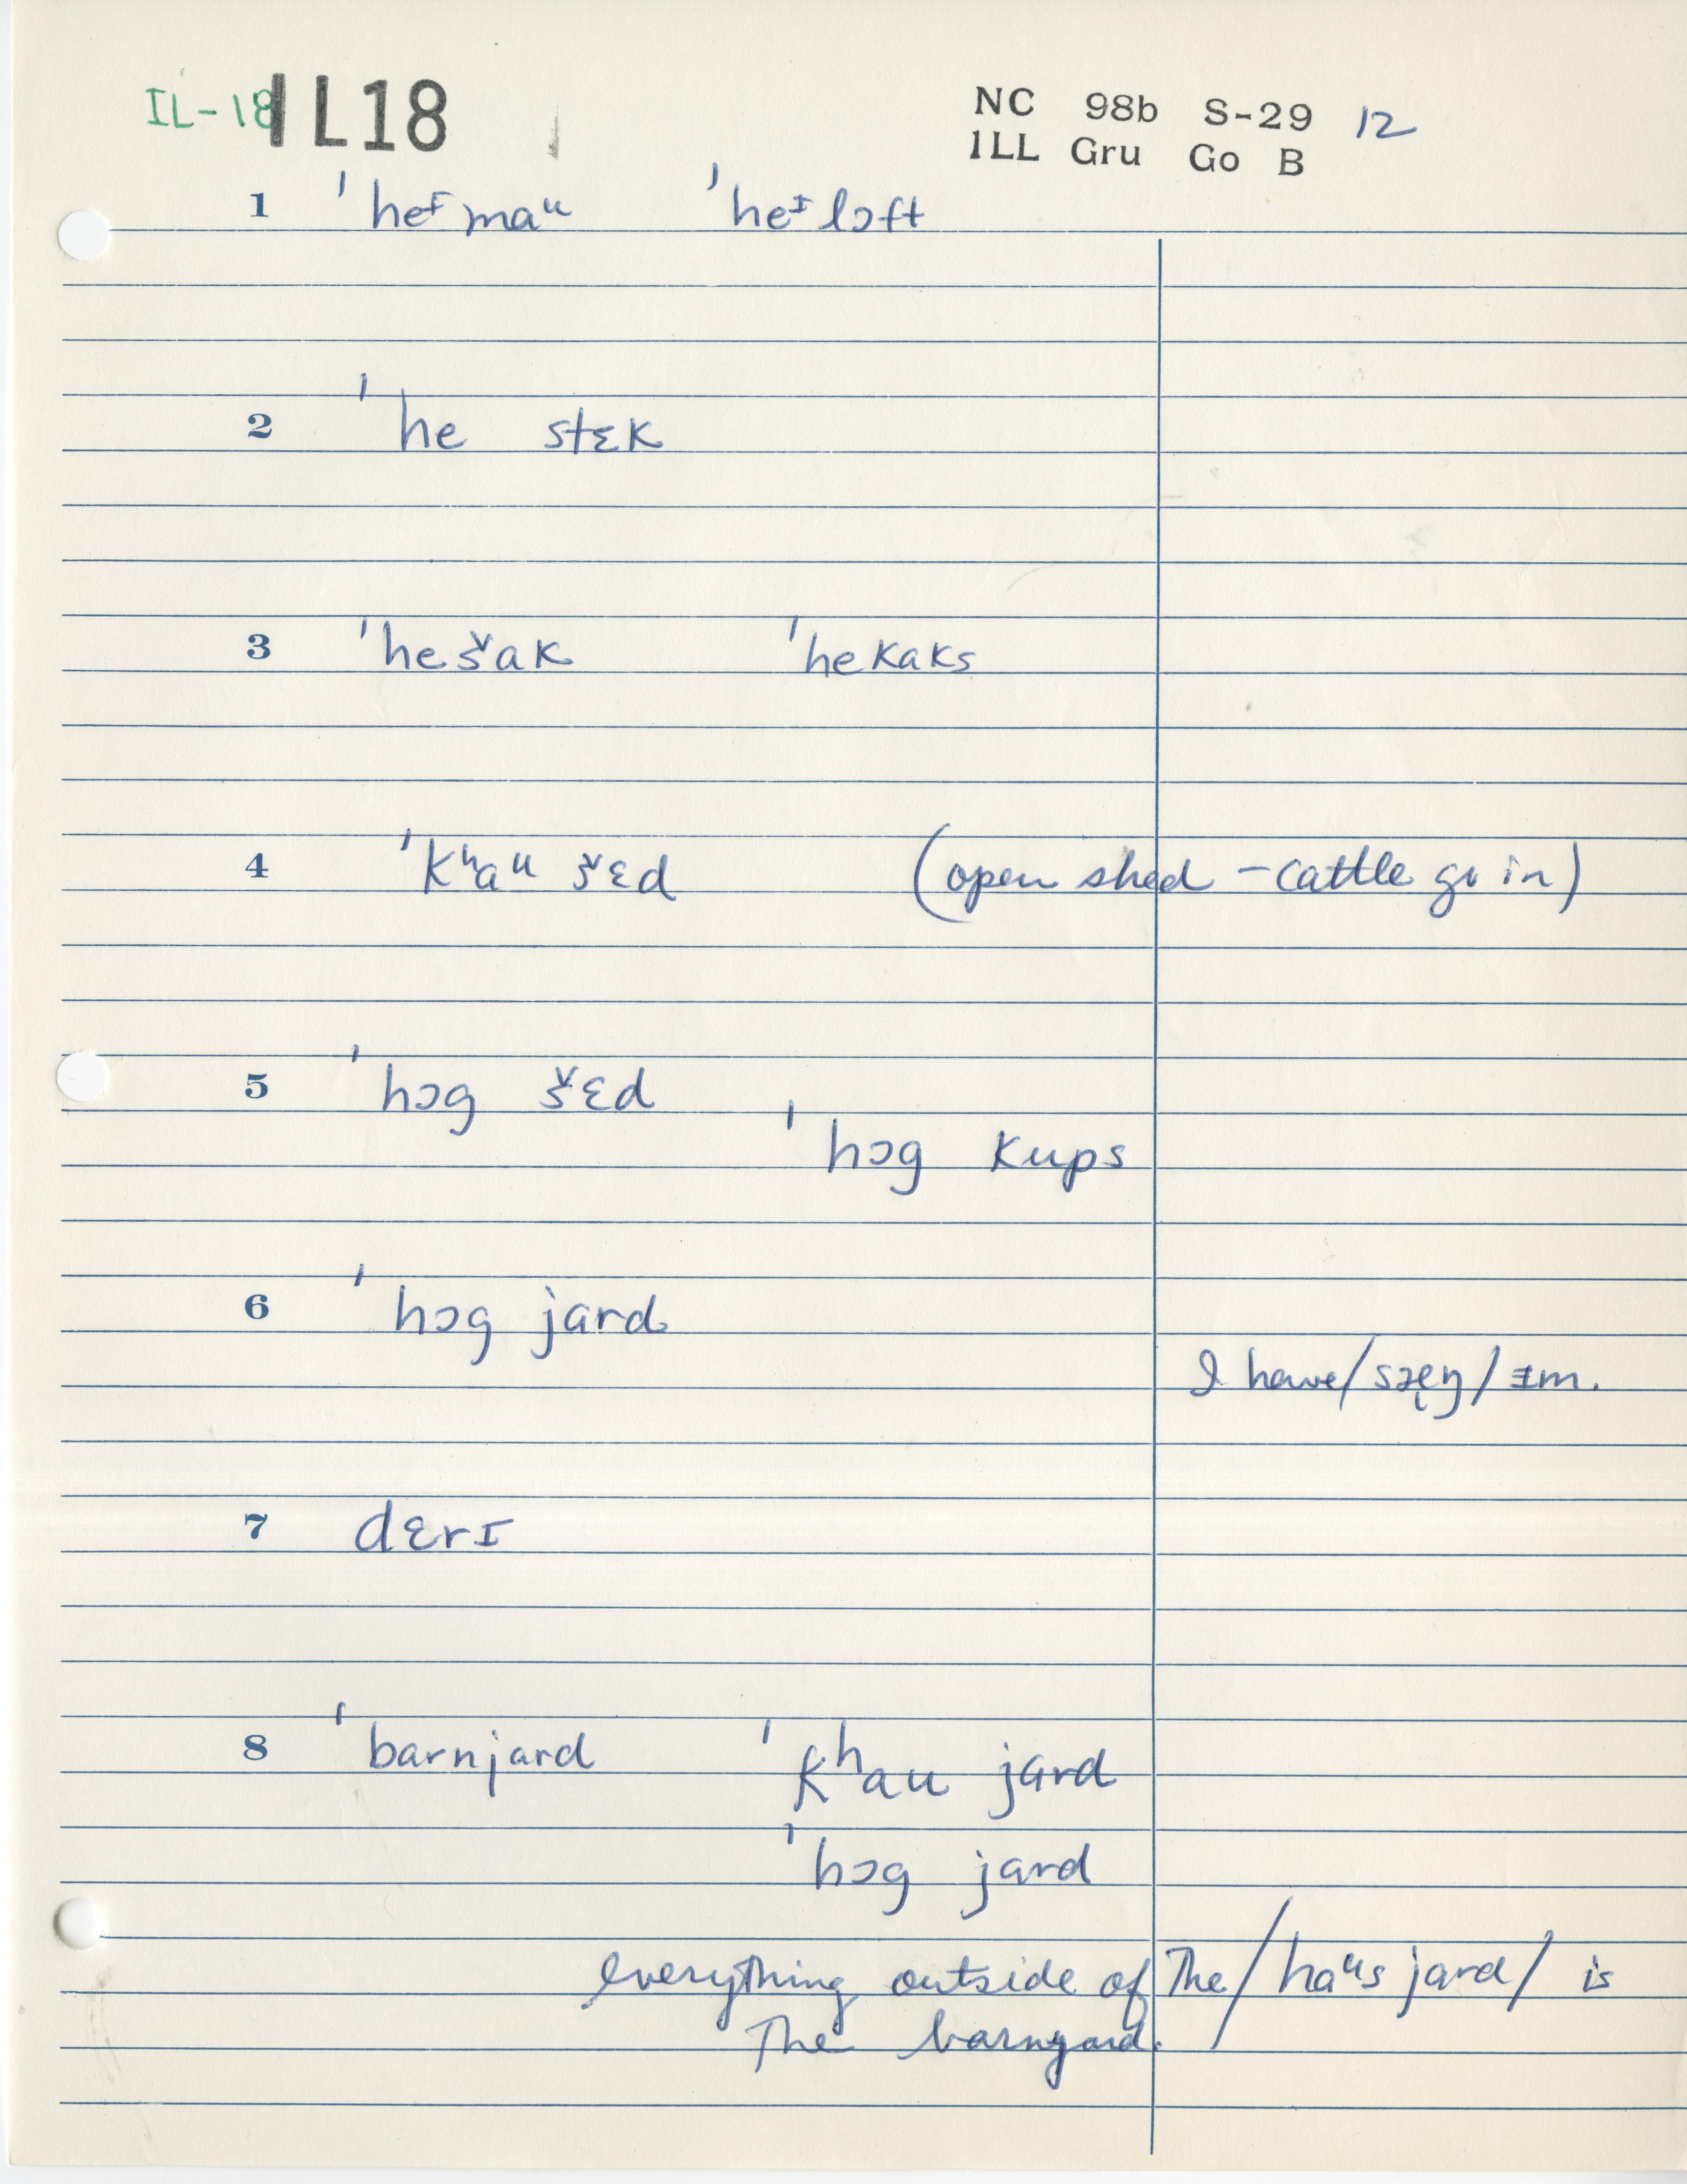 IL-18 IL18 NC 98b S-29 12
1LL Gru Go B
1 ˈheᵻmaᵘ ˈheᵻlɔft
2 ˈhe stɛk
3 ˈhešak ˈhekaks
4 ˈkʰaᵘ šɛd (open shed – cattle go in)
5 ˈhɔg šɛd
ˈhɔg kups
6 ˈhɔg jard
I have / / ᵻm.
7 dɛrɪ
8 ˈbarnjard ˈkʰau jard
ˈhɔg jard
everything outside of The /haᵘs jard/ is
The barnyard.